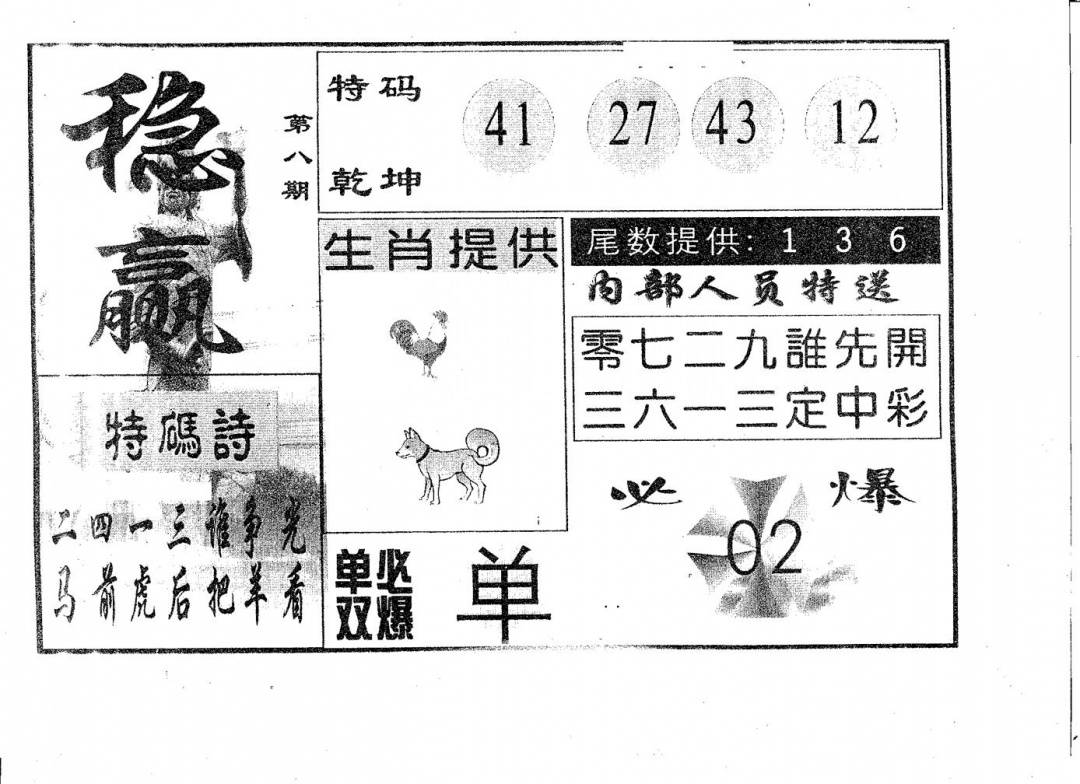 稳赢
第八期
特码
乾坤
41 27 43 12
生肖提供
尾数提供: 1 3 6
内部人员特送
零七二九誰先開
三六一三定中彩
特碼詩
二四一三谁争光
马前虎后把羊看
单双必爆
单
必爆
02